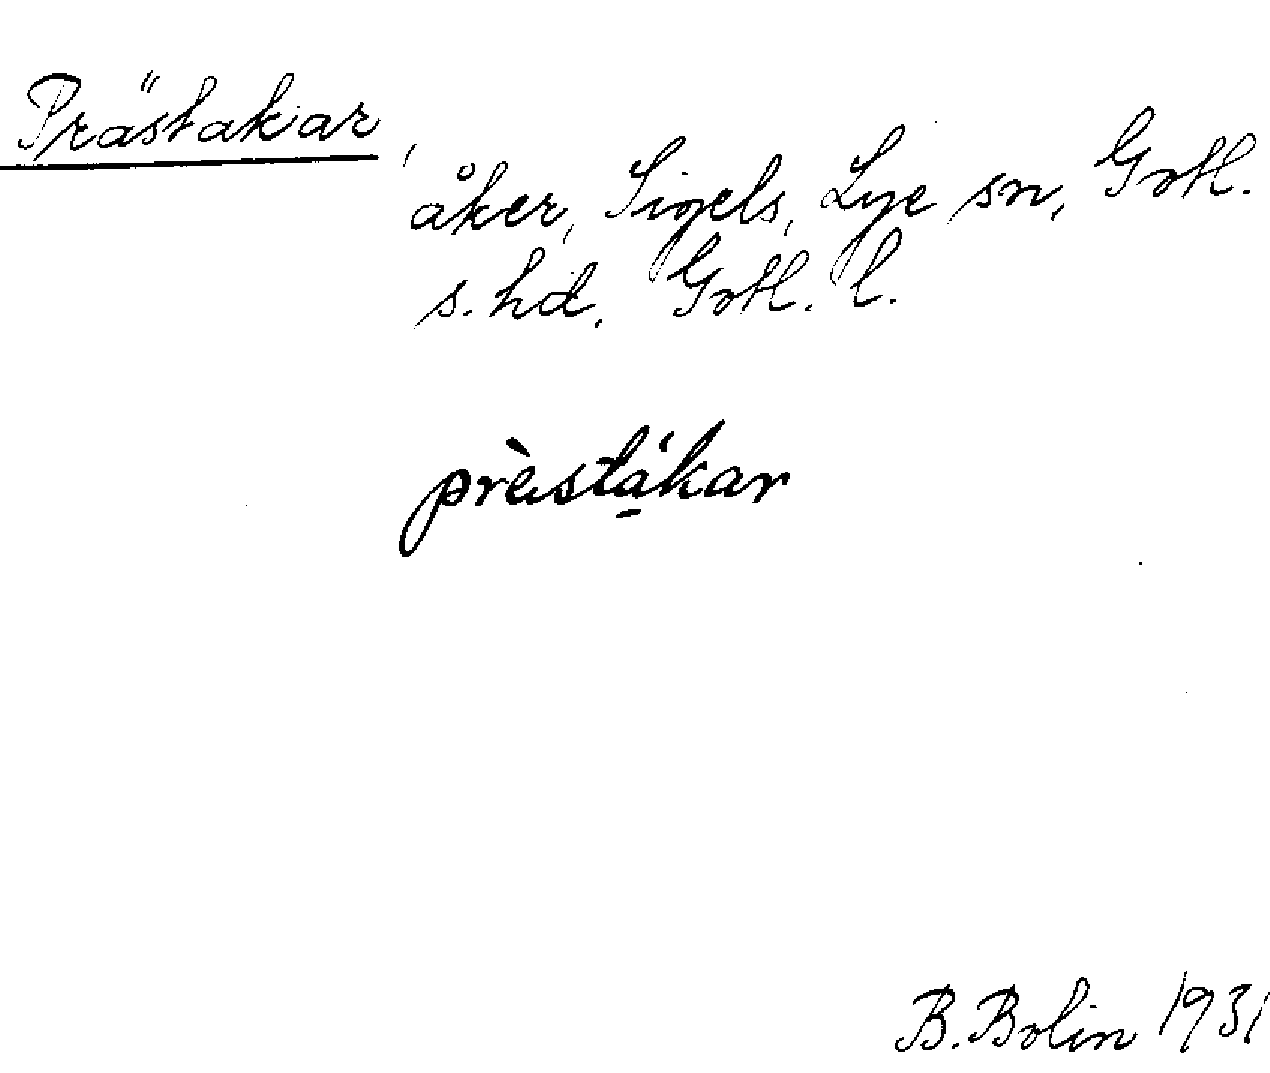 Prästakar,
åker, Sigels, Lye sn, Gotl.
s. hd, Gotl. l.
prèistákar
B. Bolin 1931